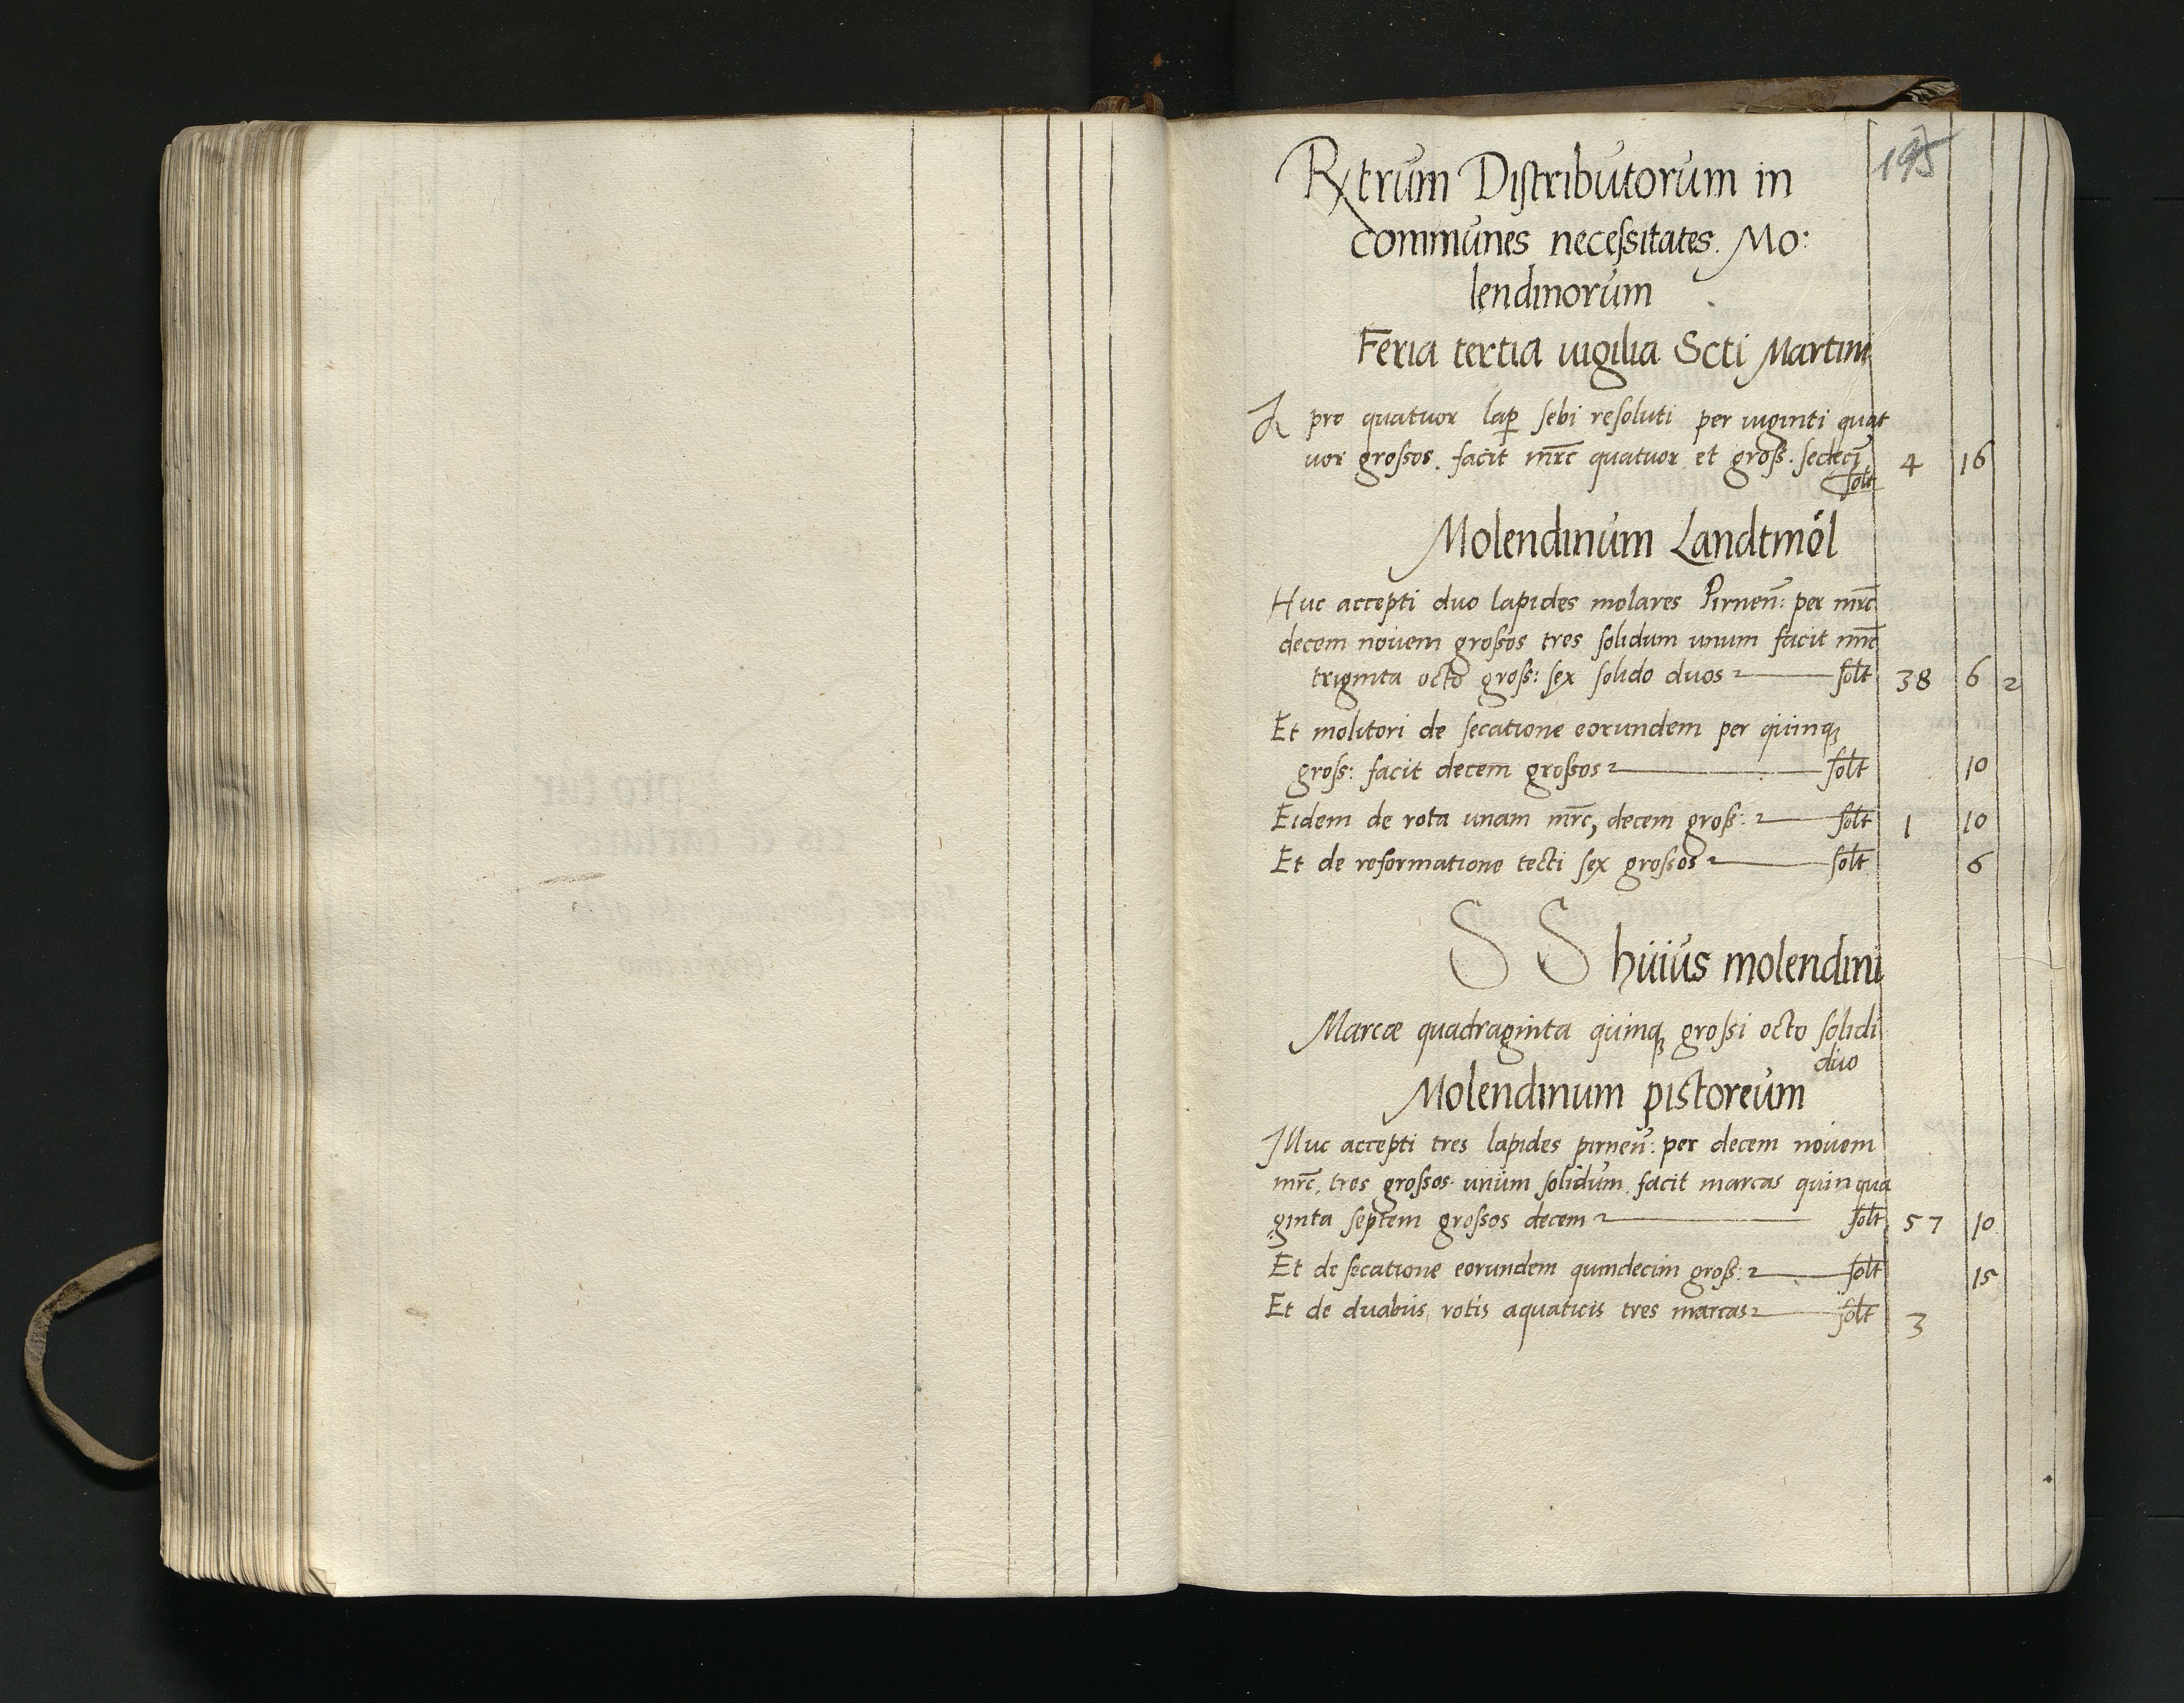 Rxtrum Distributorum in
communes necessitates. Mo:
lendinorum
Feria tertia uigilia Scti Martini
A pro quatuor lap sebi resoluti per uiginti quat
uor grossos. facit mrc quatuor et gross. sedecī 4 16
solt
Molendinum Landtmöl
Huc accepti duo lapides molares Pirnen: per mrc
decem nouem grossos tres solidum unum facit mrc
triginta octo gross: sex solido duos solt 38 6 2
Et molitori de secatione eorundem per quinq
gross: facit decem grossos solt 10
Eidem de rota unam mrc, decem gross: solt 1 10
Et de reformatione tecti sex grossos solt 6
SS huius molendini
Marcæ quadraginta quinq grossi octo solidi
duo
Molendinum pistoreum
Illuc accepti tres lapides pirnen: per decem nouem
mrc. tres grossos unum solidum. facit marcas quinqua
ginta septem grossos decem solt 57 10
Et de secatione eorundem quindecim gross: solt 15
Et de duabus rotis aquaticis tres marcas solt 3